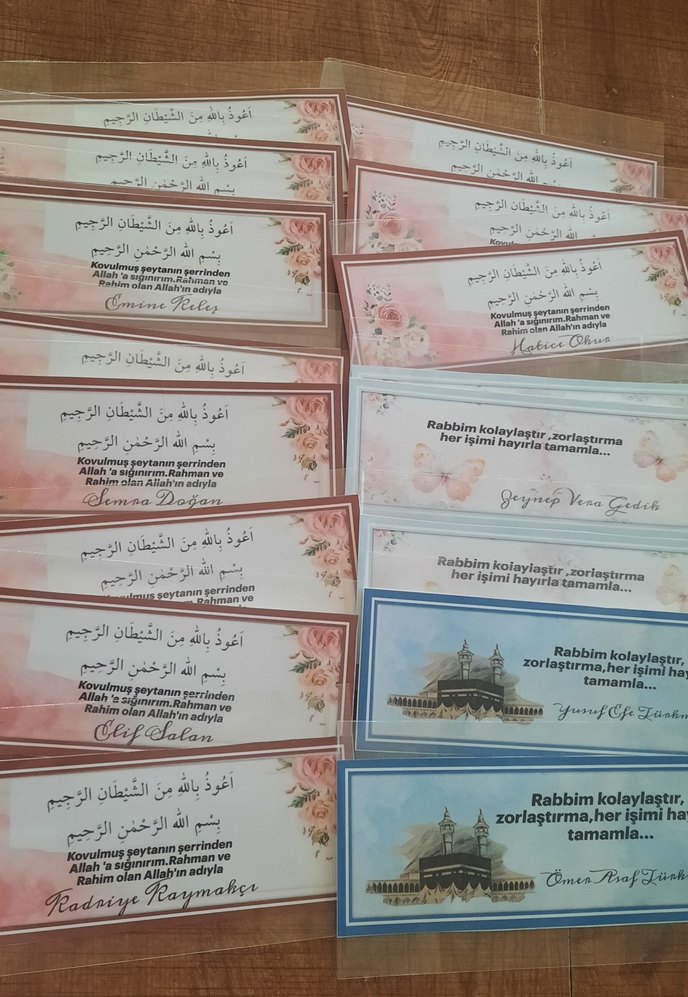 اَعُوذُ بِاللّٰهِ مِنَ الشَّيْطَانِ الرَّجِيمِ
اَعُوذُ بِاللّٰهِ مِنَ الشَّيْطَانِ الرَّجِيمِ
بِسْمِ اللّٰهِ الرَّحْمٰنِ الرَّحِيمِ
اَعُوذُ بِاللّٰهِ مِنَ الشَّيْطَانِ الرَّجِيمِ
بِسْمِ اللّٰهِ الرَّحْمٰنِ الرَّحِيمِ
Kovulmuş şeytanın şerrinden
Allah 'a sığınırım.Rahman ve
Rahim olan Allah'ın adıyla
Emine Keleş
اَعُوذُ بِاللّٰهِ مِنَ الشَّيْطَانِ الرَّجِيمِ
اَعُوذُ بِاللّٰهِ مِنَ الشَّيْطَانِ الرَّجِيمِ
بِسْمِ اللّٰهِ الرَّحْمٰنِ الرَّحِيمِ
Kovulmuş şeytanın şerrinden
Allah 'a sığınırım.Rahman ve
Rahim olan Allah'ın adıyla
Semra Doğan
اَعُوذُ بِاللّٰهِ مِنَ الشَّيْطَانِ الرَّجِيمِ
بِسْمِ اللّٰهِ الرَّحْمٰنِ الرَّحِيمِ
şeytanın şerrinden
Rahman ve
اَعُوذُ بِاللّٰهِ مِنَ الشَّيْطَانِ الرَّجِيمِ
بِسْمِ اللّٰهِ الرَّحْمٰنِ الرَّحِيمِ
Kovulmuş şeytanın şerrinden
Allah 'a sığınırım.Rahman ve
Rahim olan Allah'ın adıyla
Elif Salan
اَعُوذُ بِاللّٰهِ مِنَ الشَّيْطَانِ الرَّجِيمِ
بِسْمِ اللّٰهِ الرَّحْمٰنِ الرَّحِيمِ
Kovulmuş şeytanın şerrinden
Allah 'a sığınırım.Rahman ve
Rahim olan Allah'ın adıyla
Kadriye Kaymakçı
اَعُوذُ بِاللّٰهِ مِنَ الشَّيْطَانِ الرَّجِيمِ
بِسْمِ اللّٰهِ الرَّحْمٰنِ الرَّحِيمِ
اَعُوذُ بِاللّٰهِ مِنَ الشَّيْطَانِ الرَّجِيمِ
بِسْمِ اللّٰهِ الرَّحْمٰنِ الرَّحِيمِ
اَعُوذُ بِاللّٰهِ مِنَ الشَّيْطَانِ الرَّجِيمِ
بِسْمِ اللّٰهِ الرَّحْمٰنِ الرَّحِيمِ
Kovulmuş şeytanın şerrinden
Allah 'a sığınırım.Rahman ve
Rahim olan Allah'ın adıyla
Hatice Okur
Rabbim kolaylaştır ,zorlaştırma
her işimi hayırla tamamla...
Zeynep Vera Gedik
Rabbim kolaylaştır ,zorlaştırma
her işimi hayırla tamamla...
Rabbim kolaylaştır,
zorlaştırma,her işimi
tamamla...
Yusuf Efe
Rabbim kolaylaştır,
zorlaştırma,her işimi
tamamla...
Ömer Asaf